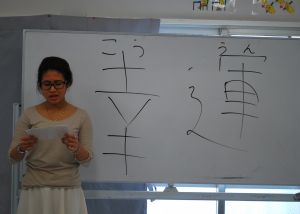 こううん
幸運